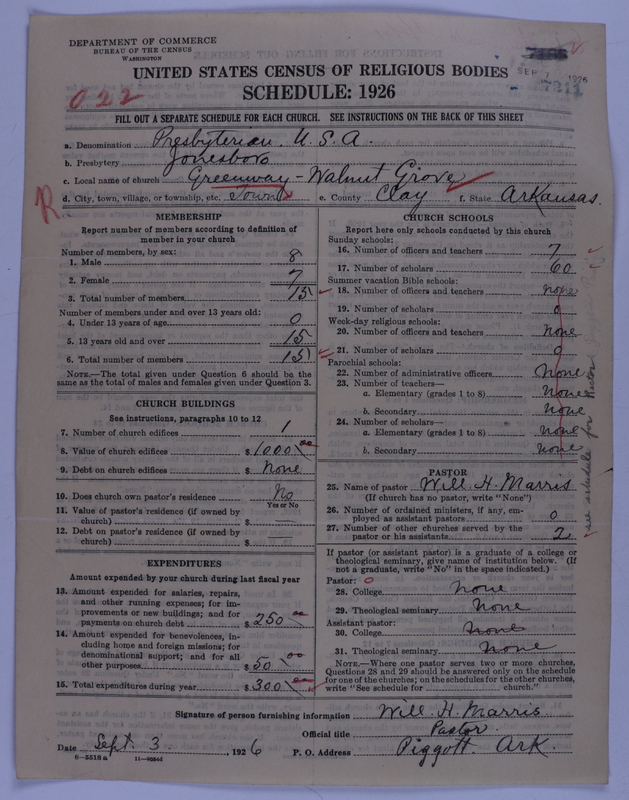 DEPARTMENT OF COMMERCE
BUREAU OF THE CENSUS
WASHINGTON
UNITED STATES CENSUS OF RELIGIOUS BODIES
SCHEDULE: 1926
SEP 7 1926
022
FILL OUT A SEPARATE SCHEDULE FOR EACH CHURCH. SEE INSTRUCTIONS ON THE BACK OF THIS SHEET
a. Denomination Presbyterian. U.S.A.
b. Presbytery Jonesboro
c. Local name of church Greenway - Walnut Grove
R
d. City, town, village, or township, etc. Town e. County Clay f. State Arkansas.
MEMBERSHIP
Report number of members according to definition of
member in your church
Number of members, by sex:
1. Male 8
2. Female 7
3. Total number of members 15
Number of members under and over 13 years old:
4. Under 13 years of age 0
5. 13 years old and over 15
6. Total number of members 15
NOTE.—The total given under Question 6 should be the
same as the total of males and females given under Question 3.
CHURCH BUILDINGS
See instructions, paragraphs 10 to 12
7. Number of church edifices 1
8. Value of church edifices $ 1000 00
9. Debt on church edifices $ None
10. Does church own pastor's residence No
Yes or No
11. Value of pastor's residence (if owned by
church) $ —
12. Debt on pastor's residence (if owned by
church) $ —
EXPENDITURES
Amount expended by your church during last fiscal year
13. Amount expended for salaries, repairs,
and other running expenses; for im-
provements or new buildings; and for
payments on church debt $ 250 00
14. Amount expended for benevolences, in-
cluding home and foreign missions; for
denominational support; and for all
other purposes $ 50 00
15. Total expenditures during year $ 300 00
CHURCH SCHOOLS
Report here only schools conducted by this church
Sunday schools:
16. Number of officers and teachers 7
17. Number of scholars 60
Summer vacation Bible schools:
18. Number of officers and teachers none
19. Number of scholars 0
Week-day religious schools:
20. Number of officers and teachers none
21. Number of scholars 0
Parochial schools:
22. Number of administrative officers none
23. Number of teachers—
a. Elementary (grades 1 to 8) none
b. Secondary none
24. Number of scholars—
a. Elementary (grades 1 to 8) none
b. Secondary none
see schedule for
PASTOR
25. Name of pastor Will H. Marris
(If church has no pastor, write "None")
26. Number of ordained ministers, if any, em-
ployed as assistant pastors 0
27. Number of other churches served by the
pastor or his assistants 2
If pastor (or assistant pastor) is a graduate of a college or
theological seminary, give name of institution below. (If
not a graduate, write "No" in the space indicated.)
Pastor: 0
28. College none
29. Theological seminary none
Assistant pastor:
30. College none
31. Theological seminary none
NOTE.—Where one pastor serves two or more churches,
Questions 28 and 29 should be answered only on the schedule
for one of the churches; on the schedules for the other churches,
write "See schedule for church."
Signature of person furnishing information Will. H. Marris
Official title Pastor
Date Sept. 3, 1926 P. O. Address Piggott Ark.
6—5518a